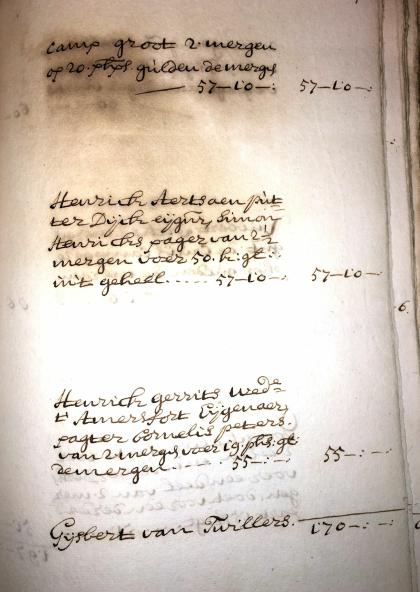 camp groot 2 mergen
op 20. phs. gulden de mergē
57-10-: 57-10-:
Henrick Aertsaen pūt
ter Dijck eijgnr, Simon
Henricks pager van 2½
mergen voer 50. k. gl:
int geheel..... 57-10-: 57-10-:
Henrick Gerrits
t' Amersfort Eijgenaer,
pagter Cornelis peters.
van 2 mergē voer 19. phs. gl
de mergen.. 55-:- 55-:-
Gijsbert van Twillers. 170-:-
6.